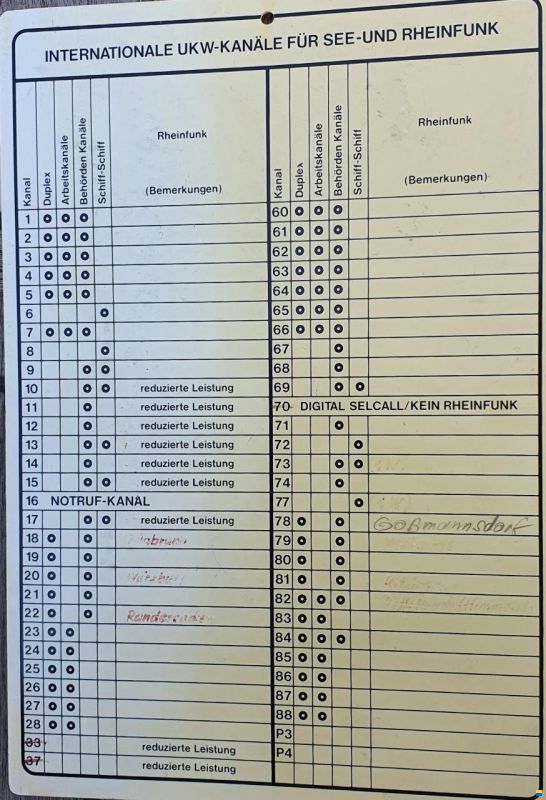 INTERNATIONALE UKW-KANÄLE FÜR SEE-UND RHEINFUNK
Kanal Duplex Arbeitskanäle Behörden Kanäle Schiff-Schiff Rheinfunk (Bemerkungen)
1
2
3
4
5
6
7
8
9
10 reduzierte Leistung
11 reduzierte Leistung
12 reduzierte Leistung
13 reduzierte Leistung
14 reduzierte Leistung
15 reduzierte Leistung
16 NOTRUF-KANAL
17 reduzierte Leistung
18
19
20
21
22
23
24
25
26
27
28
33 reduzierte Leistung
37 reduzierte Leistung
Kanal Duplex Arbeitskanäle Behörden Kanäle Schiff-Schiff Rheinfunk (Bemerkungen)
60
61
62
63
64
65
66
67
68
69
70 DIGITAL SELCALL/KEIN RHEINFUNK
71
72
73
74
77
78 Goßmannsdorf
79
80
81
82
83
84
85
86
87
88
P3
P4